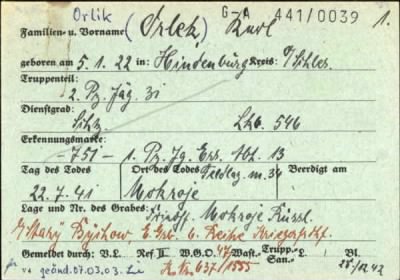 Orlik G-A 441/0039 1.
Familien- u. Vorname (Orlek, Karl
geboren am 5.1.22 in: Hindenburg Kreis: O/Schles.
Truppenteil:
2. Pz. Jäg. 31
Dienstgrad:
Schtz. 546
Erkennungsmarke:
-751- 1. Pz. Jg. Ers. Abt. 13
Tag des Todes Ort des Todes Feldlag. M. 34 Beerdigt am
22.7.41 Mokroje
Lage und Nr. des Grabes: Friedhf. Mokroje Russl.
Stary Bychow E. Gr. 6. Reihe
Gemeldet durch: V.L. Ref II W.G.O. 47/ Wast.- Trupp.- San.- L. Bl.
geänd. 07.03.03. 28/12 42